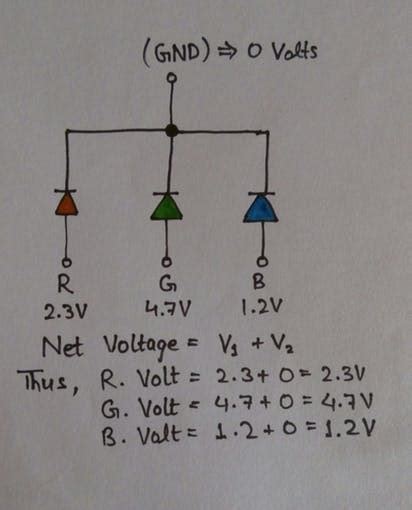 (GND) ⇒ 0 Volts
R G B
2.3V 4.7V 1.2V
Net Voltage = V₁ + V₂
Thus, R. Volt = 2.3 + 0 = 2.3V
G. Volt = 4.7 + 0 = 4.7V
B. Volt = 1.2 + 0 = 1.2V